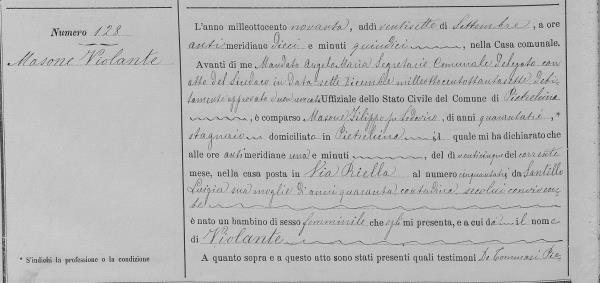 Numero 128
Masone Violante
* S'indichi la professione o la condizione
L'anno milleottocento novanta, addì ventisette di Settembre, a ore
antimeridiane dieci e minuti quindici, nella Casa comunale.
Avanti di me Mandato Angelo Maria Segretario Comunale Delegato con
atto del Sindaco in Data sette Dicembre milleottocentottantasette debi-
tamente approvato Uffiziale dello Stato Civile del Comune di Pietrelcina
, è comparso Masone Filippo fu Lodovico, di anni quarantatre, *
stagnaio domiciliato in Pietrelcina il quale mi ha dichiarato che
alle ore antimeridiane una e minuti , del dì venticinque del corrente
mese, nella casa posta in Via Riella al numero cinquantatre, da Santillo
Luigia sua moglie d'anni quaranta contadina secolui conviven-
te
è nato un bambino di sesso femminile che egli mi presenta, e a cui dà il nome
di Violante
A quanto sopra e a questo atto sono stati presenti quali testimoni De Tommasi